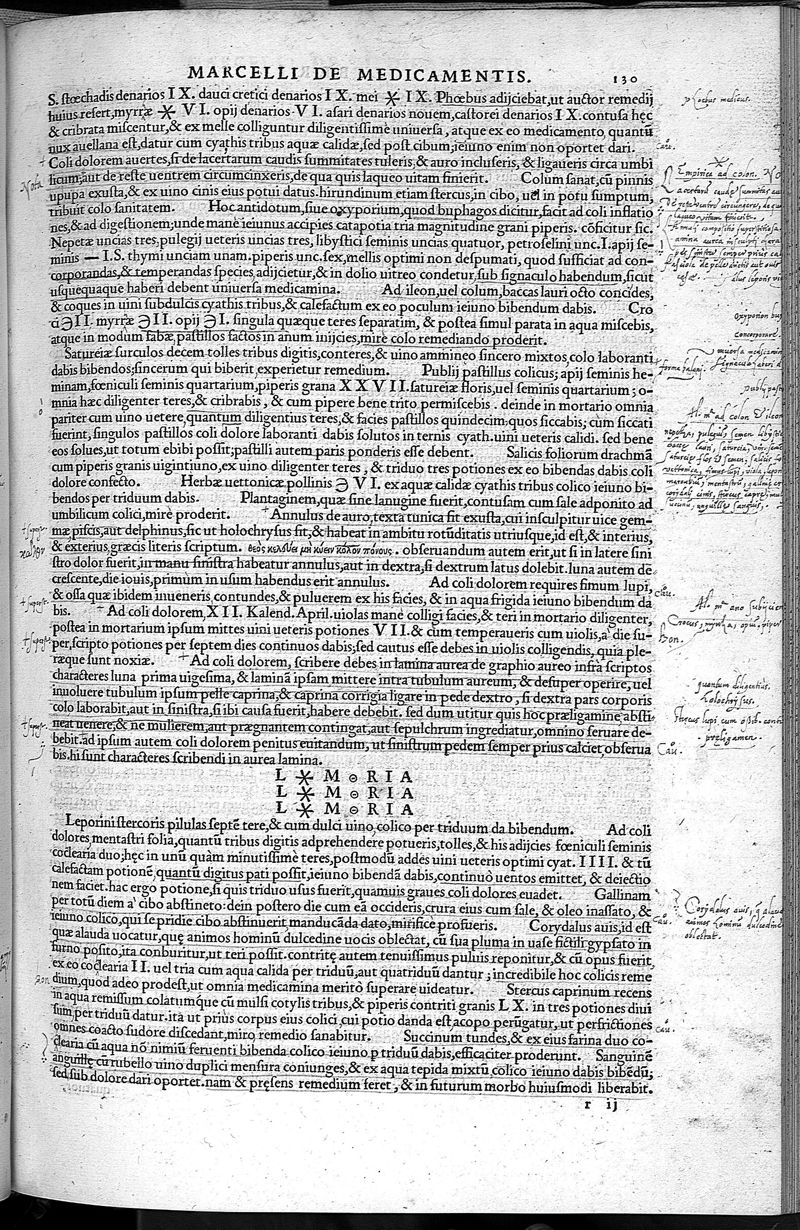 MARCELLI DE MEDICAMENTIS. 130
S. stœchadis denarios IX. dauci cretici denarios IX. mei IX. Phœbus adijciebat, ut auctor remedij
huius refert, myrræ VI. opij denarios VI. asari denarios nouem, castorei denarios IX. contusa hęc
& cribrata miscentur, & ex melle colliguntur diligentissime uniuersa, atque ex eo medicamento, quantū
nux auellana est, datur cum cyathis tribus aquæ calidæ, sed post cibum, ieiuno enim non oportet dari.
Coli dolorem auertes, si de lacertarum caudis summitates tuleris, & auro incluseris, & ligaueris circa umbi
licum, aut de reste uentrem circumcinxeris, de qua quis laqueo uitam finierit. Colum sanat, cū pinnis
upupa exusta, & ex uino cinis eius potui datus. hirundinum etiam stercus, in cibo, uel in potu sumptum,
tribuit colo sanitatem. Hoc antidotum, siue oxyporium, quod buphagos dicitur, facit ad coli inflatio
nes, & ad digestionem; unde mane ieiunus accipies catapotia tria magnitudine grani piperis. cōficitur sic.
Nepetæ uncias tres, pulegij ueteris uncias tres, libystici seminis uncias quatuor, petroselini unc. I. apij se-
minis — I.S. thymi unciam unam. piperis unc. sex, mellis optimi non despumati, quod sufficiat ad con-
corporandas, & temperandas species, adijcietur, & in dolio uitreo condetur, sub signaculo habendum, sicut
usquequaque haberi debent uniuersa medicamina. Ad ileon, uel colum, baccas lauri octo concides,
& coques in uini subdulcis cyathis tribus, & calefactum ex eo poculum ieiuno bibendum dabis. Cro
ci ϿII. myrræ ϿII. opij ϿI. singula quæque teres separatim, & postea simul parata in aqua miscebis,
atque in modum fabæ, pastillos factos in anum inijcies, mire colo remediando proderit.
Satureiæ surculos decem tolles tribus digitis, conteres, & uino ammineo sincero mixtos, colo laboranti
dabis bibendos; sincerum qui biberit, experietur remedium. Publij pastillus colicus; apij seminis he-
minam, fœniculi seminis quartarium, piperis grana XXVII. satureiæ floris, uel seminis quartarium; o-
mnia hæc diligenter teres, & cribrabis, & cum pipere bene trito permiscebis. deinde in mortario omnia
pariter cum uino uetere, quantum diligentius teres, & facies pastillos quindecim, quos siccabis; cum siccati
fuerint, singulos pastillos coli dolore laboranti dabis solutos in ternis cyath. uini ueteris calidi. sed bene
eos solues, ut totum ebibi possit; pastilli autem paris ponderis esse debent. Salicis foliorum drachmā
cum piperis granis uigintiuno, ex uino diligenter teres, & triduo tres potiones ex eo bibendas dabis coli
dolore confecto. Herbæ uettonicæ pollinis ϿVI. ex aquæ calidæ cyathis tribus colico ieiuno bi-
bendos per triduum dabis. Plantaginem, quæ sine lanugine fuerit, contusam cum sale adponito ad
umbilicum colici, mirè proderit. Annulus de auro, texta tunica fit exusta, cui insculpitur uice gem-
mæ piscis, aut delphinus, sic ut holochrysus fit, & habeat in ambitu rotūditatis utriusque, id est, & interius,
& exterius, græcis literis scriptum. θεὸς κελεύει μὴ κύειν κόλον πόνους. obseruandum autem erit, ut si in latere sini
stro dolor fuerit, in manu sinistra habeatur annulus, aut in dextra, si dextrum latus dolebit. luna autem de
crescente, die iouis, primum in usum habendus erit annulus. Ad coli dolorem requires fimum lupi,
& ossa quæ ibidem inueneris, contundes, & puluerem ex his facies, & in aqua frigida ieiuno bibendum da
bis. Ad coli dolorem, XII. Kalend. April. uiolas manè colligi facies, & teri in mortario diligenter,
postea in mortarium ipsum mittes uini ueteris potiones VII. & cum temperaueris cum uiolis, à die su-
per, scripto potiones per septem dies continuos dabis; sed cautus esse debes in uiolis colligendis, quia ple-
ræque sunt noxiæ. Ad coli dolorem, scribere debes in lamina aurea de graphio aureo infra scriptos
characteres luna prima uigesima, & laminā ipsam mittere intra tubulum aureum, & desuper operire, uel
inuoluere tubulum ipsum pelle caprina, & caprina corrigia ligare in pede dextro, si dextra pars corporis
colo laborabit, aut in sinistra, si ibi causa fuerit, habere debebit. sed dum utitur quis hoc præligamine, absti
neat uenere, & ne mulierem, aut prægnantem contingat, aut sepulchrum ingrediatur, omnino seruare de-
bebit. ad ipsum autem coli dolorem penitus euitandum, ut sinistrum pedem semper prius calciet, obserua
bis. hi sunt characteres scribendi in aurea lamina.
L M ΘRIA
L M ΘRIA
L M ΘRIA
Leporini stercoris pilulas septē tere, & cum dulci uino, colico per triduum da bibendum. Ad coli
dolores mentastri folia, quantū tribus digitis adprehendere potueris, tolles, & his adijcies fœniculi seminis
coclearia duo; hęc in unū quàm minutissimè teres, postmodū addes uini ueteris optimi cyat. IIII. & tū
calefactam potionē, quantū digitus pati possit, ieiuno bibendā dabis, continuò uentos emittet, & deiectio
nem faciet. hac ergo potione, si quis triduo usus fuerit, quamuis graues coli dolores euadet. Gallinam
per totū diem à cibo abstineto: dein postero die cum eā occideris, crura eius cum sale, & oleo inassato, &
ieiuno colico, qui se pridie cibo abstinuerit, manducāda dato, mirificè profueris. Corydalus auis, id est
quæ alauda uocatur, quę animos hominū dulcedine uocis oblectat, cū sua pluma in uase fictili gypsato in
furno posito, ita conburitur, ut teri possit. contritę autem tenuissimus puluis reponitur, & cū opus fuerit,
ex eo coclearia II. uel tria cum aqua calida per triduū, aut quatriduū dantur; incredibile hoc colicis reme
dium, quod adeo prodest, ut omnia medicamina meritò superare uideatur. Stercus caprinum recens
in aqua remissum colatumque cū mulsi cotylis tribus, & piperis contriti granis LX. in tres potiones diui
sum, per triduū datur. ita ut prius corpus eius colici, cui potio danda est, acopo perūgatur, ut perfrictiones
omnes coacto sudore discedant, miro remedio sanabitur. Succinum tundes, & ex eius farina duo co-
clearia cū aqua nō nimiū feruenti bibenda colico ieiuno p triduū dabis, efficaciter proderunt. Sanguinē
anguillę cū rubello uino duplici mensura coniunges, & ex aqua tepida mixtū, colico ieiuno dabis bibēdū;
sed sub dolore dari oportet. nam & pręsens remedium feret, & in futurum morbo huiusmodi liberabit.
r ij
Nota
Phœbus medicus.
Cau.
Empirica ad colon.
oxyporion
concorporare.
Cau.
Bon.
quantum diligentius.
holochrysus.
præligamen.
Cau.
Corydalus auis,
animos hominū dulcedine
oblectat.
Cau.
Cau.